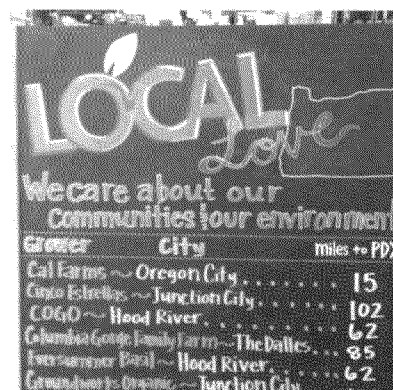 LOCAL
Love
We care about our
Communities & our environment
Grower City miles to PDX
Cal Farms ~ Oregon City....... 15
Cinco Estrellas ~ Junction City....... 102
COGO ~ Hood River........ 62
Columbia Gorge Family Farm ~ The Dalles... 85
Eversummer Basil ~ Hood River.... 62
Groundworks Organic ~ Junction City